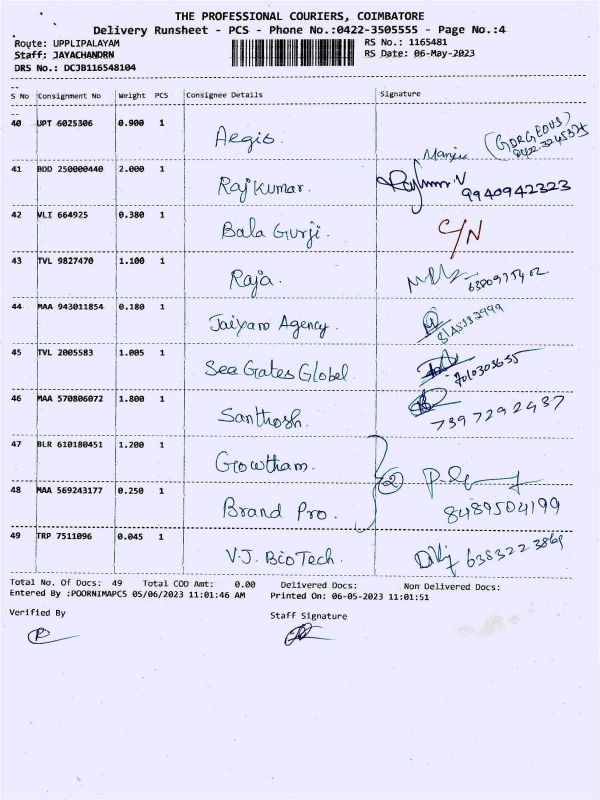 THE PROFESSIONAL COURIERS, COIMBATORE
Delivery Runsheet - PCS - Phone No.:0422-3505555 - Page No.:4
Route: UPPLIPALAYAM RS No.: 1165481
Staff: JAYACHANDRN RS Date: 06-May-2023
DRS No.: DCJB116548104
S No Consignment No Weight PCS Consignee Details Signature
40 UPT 6025306 0.900 1 Aegis. Manju (GORGEOUS)
41 BDD 250000440 2.000 1 Rajkumar. 9940942323
42 VLI 664925 0.380 1 Bala Gurji. C/N
43 TVL 9827470 1.100 1 Raja.
44 MAA 943011854 0.180 1 Jaiyam Agency. 8148132999
45 TVL 2005583 1.005 1 Sea Gates Globel 7010303655
46 MAA 570806072 1.800 1 Santhosh. 7397292437
47 BLR 610180451 1.200 1 Gowtham.
48 MAA 569243177 0.250 1 Brand Pro. 2 8489504199
49 TRP 7511096 0.045 1 V.J. BioTech. 6383223869
Total No. Of Docs: 49 Total COD Amt: 0.00 Delivered Docs: Non Delivered Docs:
Entered By :POORNIMAPCS 05/06/2023 11:01:46 AM Printed On: 06-05-2023 11:01:51
Verified By Staff Signature